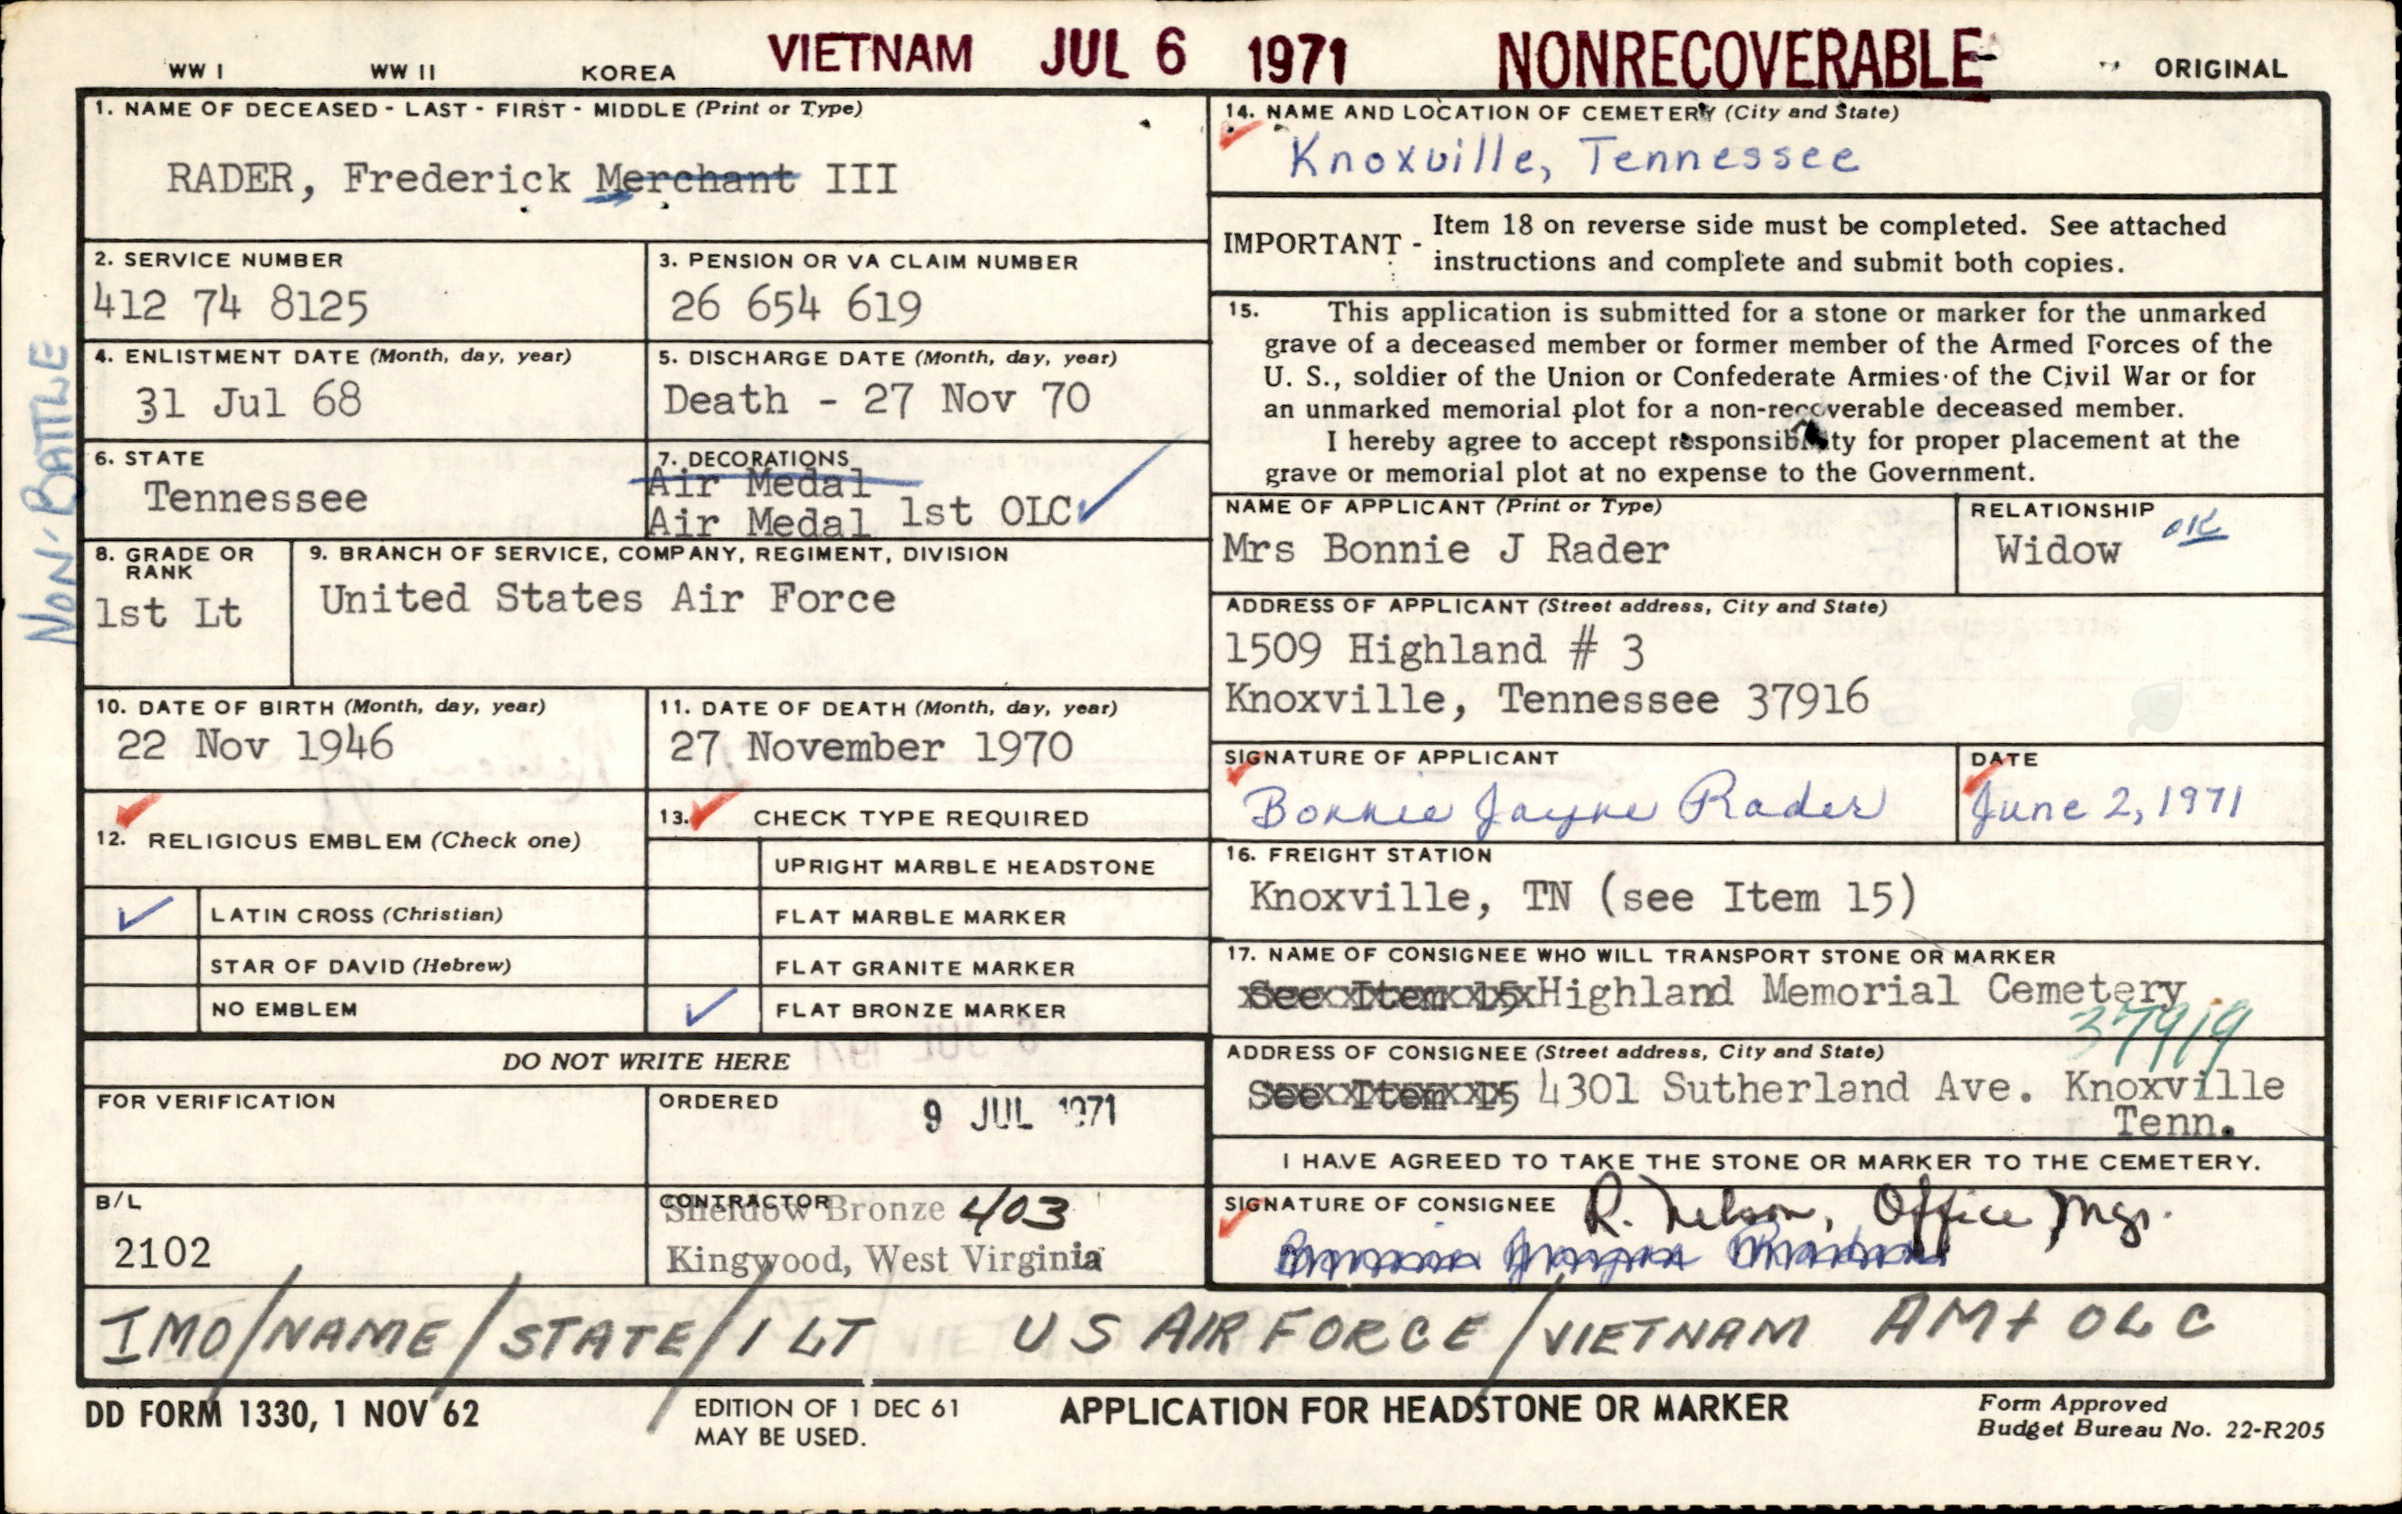 WW I WW II KOREA VIETNAM JUL 6 1971 NONRECOVERABLE ORIGINAL
1. NAME OF DECEASED - LAST - FIRST - MIDDLE (Print or Type)
RADER, Frederick Merchant III
2. SERVICE NUMBER
412 74 8125
3. PENSION OR VA CLAIM NUMBER
26 654 619
4. ENLISTMENT DATE (Month, day, year)
31 Jul 68
5. DISCHARGE DATE (Month, day, year)
Death - 27 Nov 70
NON-BATTLE
6. STATE
Tennessee
7. DECORATIONS
Air Medal
Air Medal 1st OLC
8. GRADE OR
RANK
1st Lt
9. BRANCH OF SERVICE, COMPANY, REGIMENT, DIVISION
United States Air Force
10. DATE OF BIRTH (Month, day, year)
22 Nov 1946
11. DATE OF DEATH (Month, day, year)
27 November 1970
12. RELIGIOUS EMBLEM (Check one)
LATIN CROSS (Christian)
STAR OF DAVID (Hebrew)
NO EMBLEM
13. CHECK TYPE REQUIRED
UPRIGHT MARBLE HEADSTONE
FLAT MARBLE MARKER
FLAT GRANITE MARKER
FLAT BRONZE MARKER
DO NOT WRITE HERE
FOR VERIFICATION
ORDERED
9 JUL 1971
B/L
2102
CONTRACTOR
Sheidow Bronze 403
Kingwood, West Virginia
14. NAME AND LOCATION OF CEMETERY (City and State)
Knoxville, Tennessee
IMPORTANT - Item 18 on reverse side must be completed. See attached
instructions and complete and submit both copies.
15. This application is submitted for a stone or marker for the unmarked
grave of a deceased member or former member of the Armed Forces of the
U. S., soldier of the Union or Confederate Armies of the Civil War or for
an unmarked memorial plot for a non-recoverable deceased member.
I hereby agree to accept responsibility for proper placement at the
grave or memorial plot at no expense to the Government.
NAME OF APPLICANT (Print or Type)
Mrs Bonnie J Rader
RELATIONSHIP
Widow OK
ADDRESS OF APPLICANT (Street address, City and State)
1509 Highland # 3
Knoxville, Tennessee 37916
SIGNATURE OF APPLICANT
Bonnie Jayne Rader
DATE
June 2, 1971
16. FREIGHT STATION
Knoxville, TN (see Item 15)
17. NAME OF CONSIGNEE WHO WILL TRANSPORT STONE OR MARKER
See Item 15 Highland Memorial Cemetery
37919
ADDRESS OF CONSIGNEE (Street address, City and State)
See Item 15 4301 Sutherland Ave. Knoxville
Tenn.
I HAVE AGREED TO TAKE THE STONE OR MARKER TO THE CEMETERY.
SIGNATURE OF CONSIGNEE R. Nelson, Office Mgr.
Bonnie Jayne Rader
IMO/NAME/STATE/1 LT US AIR FORCE/VIETNAM AM & OLC
DD FORM 1330, 1 NOV 62
EDITION OF 1 DEC 61
MAY BE USED.
APPLICATION FOR HEADSTONE OR MARKER
Form Approved
Budget Bureau No. 22-R205